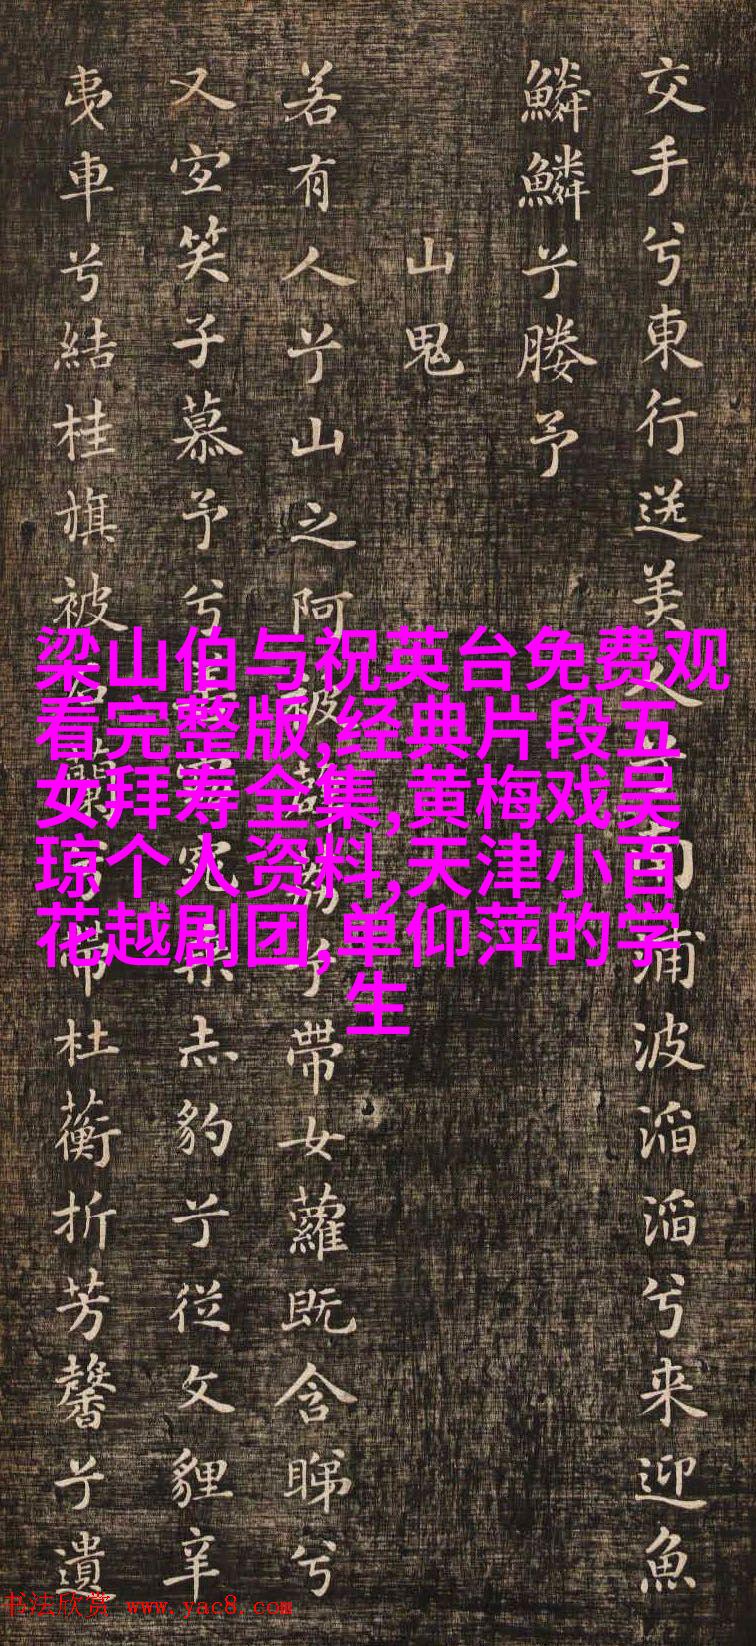 交手兮東行送美人兮南浦波滔滔兮来迎魚
鱗鱗兮媵予
山鬼
若有人兮山之阿被薜荔兮帶女蘿既含睇兮
又宜笑子慕予兮善窈窕乘赤豹兮從文貍辛
夷車兮結桂旗被石蘭兮帶杜蘅折芳馨兮遺
梁山伯与祝英台免费观
看完整版,经典片段五
女拜寿全集,黄梅戏吴
琼个人资料,天津小百
花越剧团,单仰萍的学
生
书法欣赏 www.yac8.com